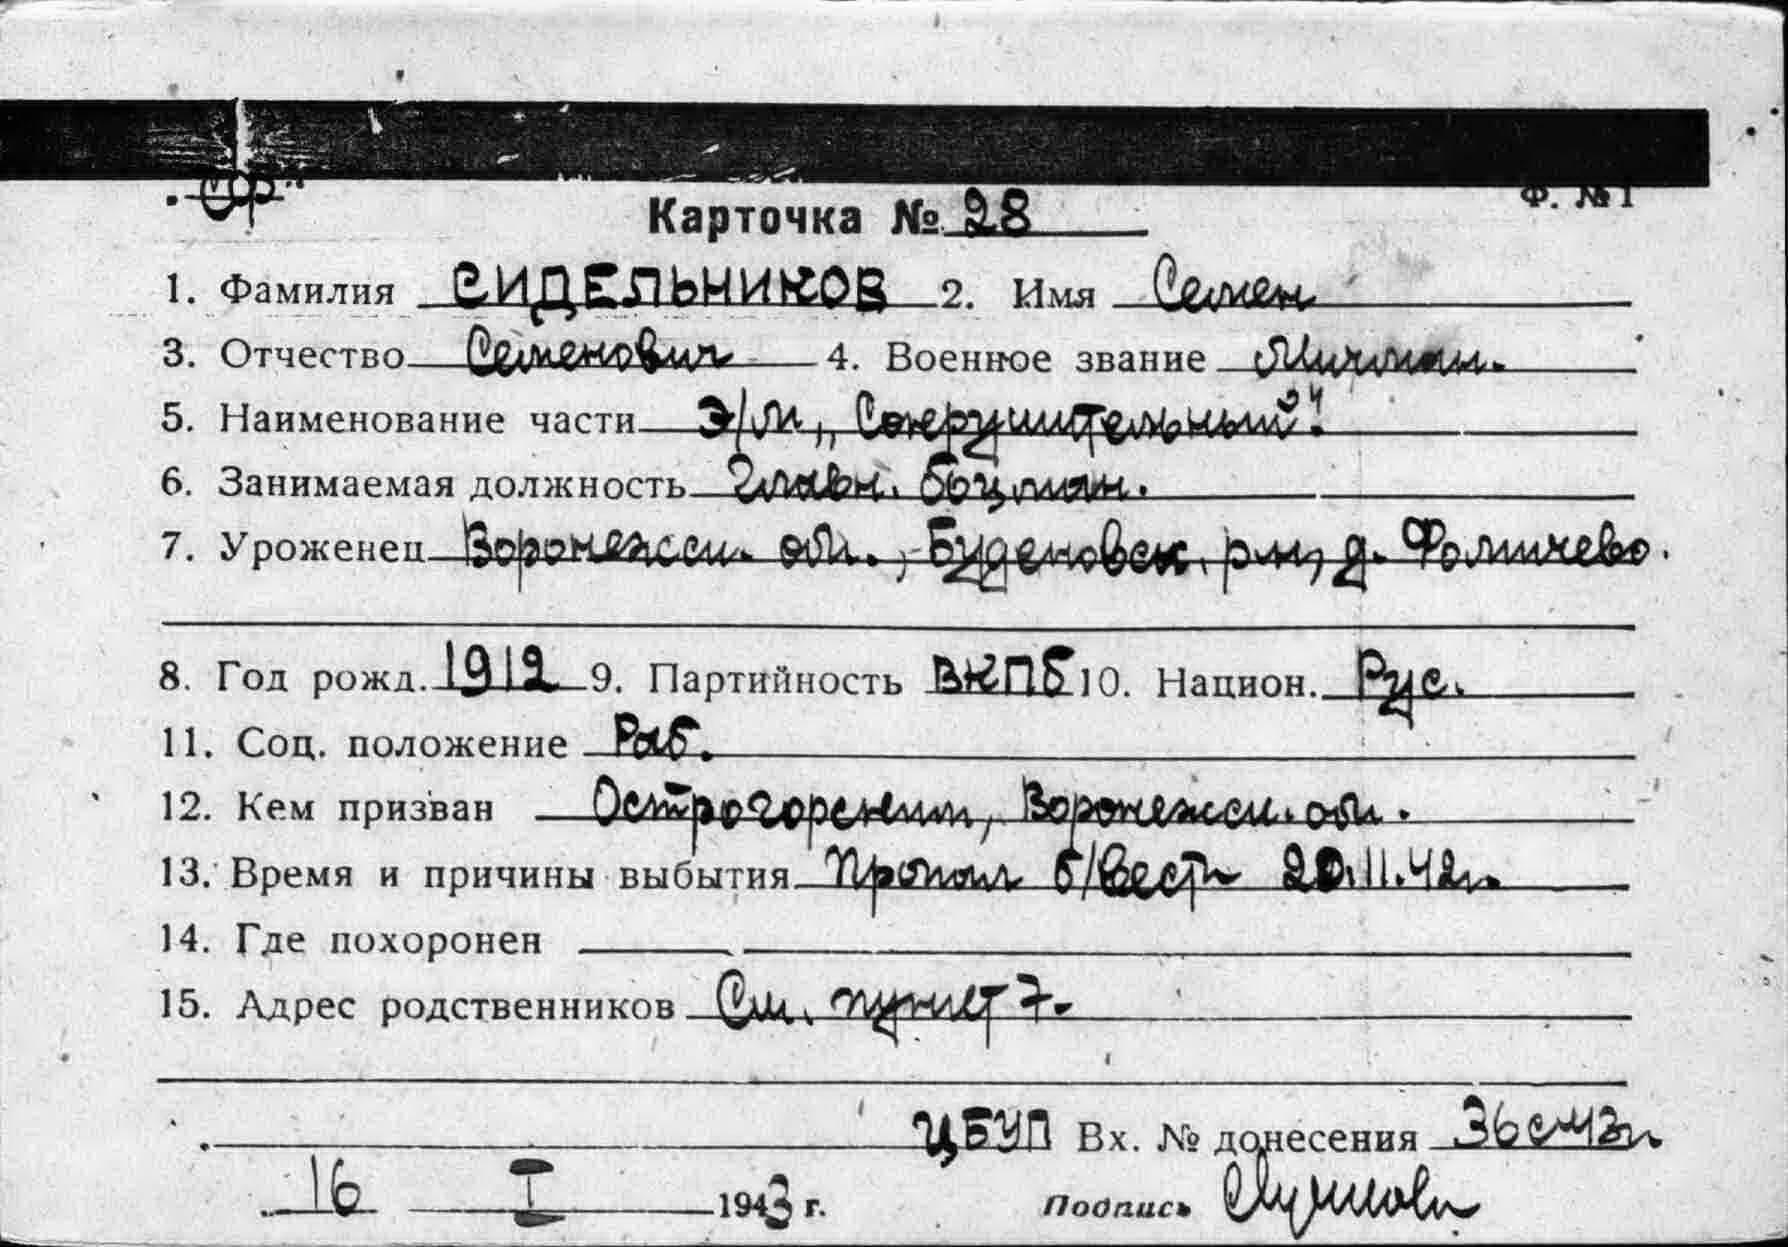 „СФ"
Ф. №1
Карточка № 28
1. Фамилия СИДЕЛЬНИКОВ 2. Имя Семен
3. Отчество Семенович 4. Военное звание Мичман.
5. Наименование части Э/М „Сокрушительный".
6. Занимаемая должность Главн. боцман.
7. Уроженец Воронежск. обл., Буденовск. р-н, д. Фомичево.
8. Год рожд. 1912 9. Партийность ВКПб 10. Национ. Рус.
11. Соц. положение Раб.
12. Кем призван Острогорским, Воронежск. обл.
13. Время и причины выбытия Пропал б/вести 20.11.42г.
14. Где похоронен
15. Адрес родственников См. пункт 7.
ЦБУП Вх. № донесения 36с 43г.
16 I 1943 г. Подпись